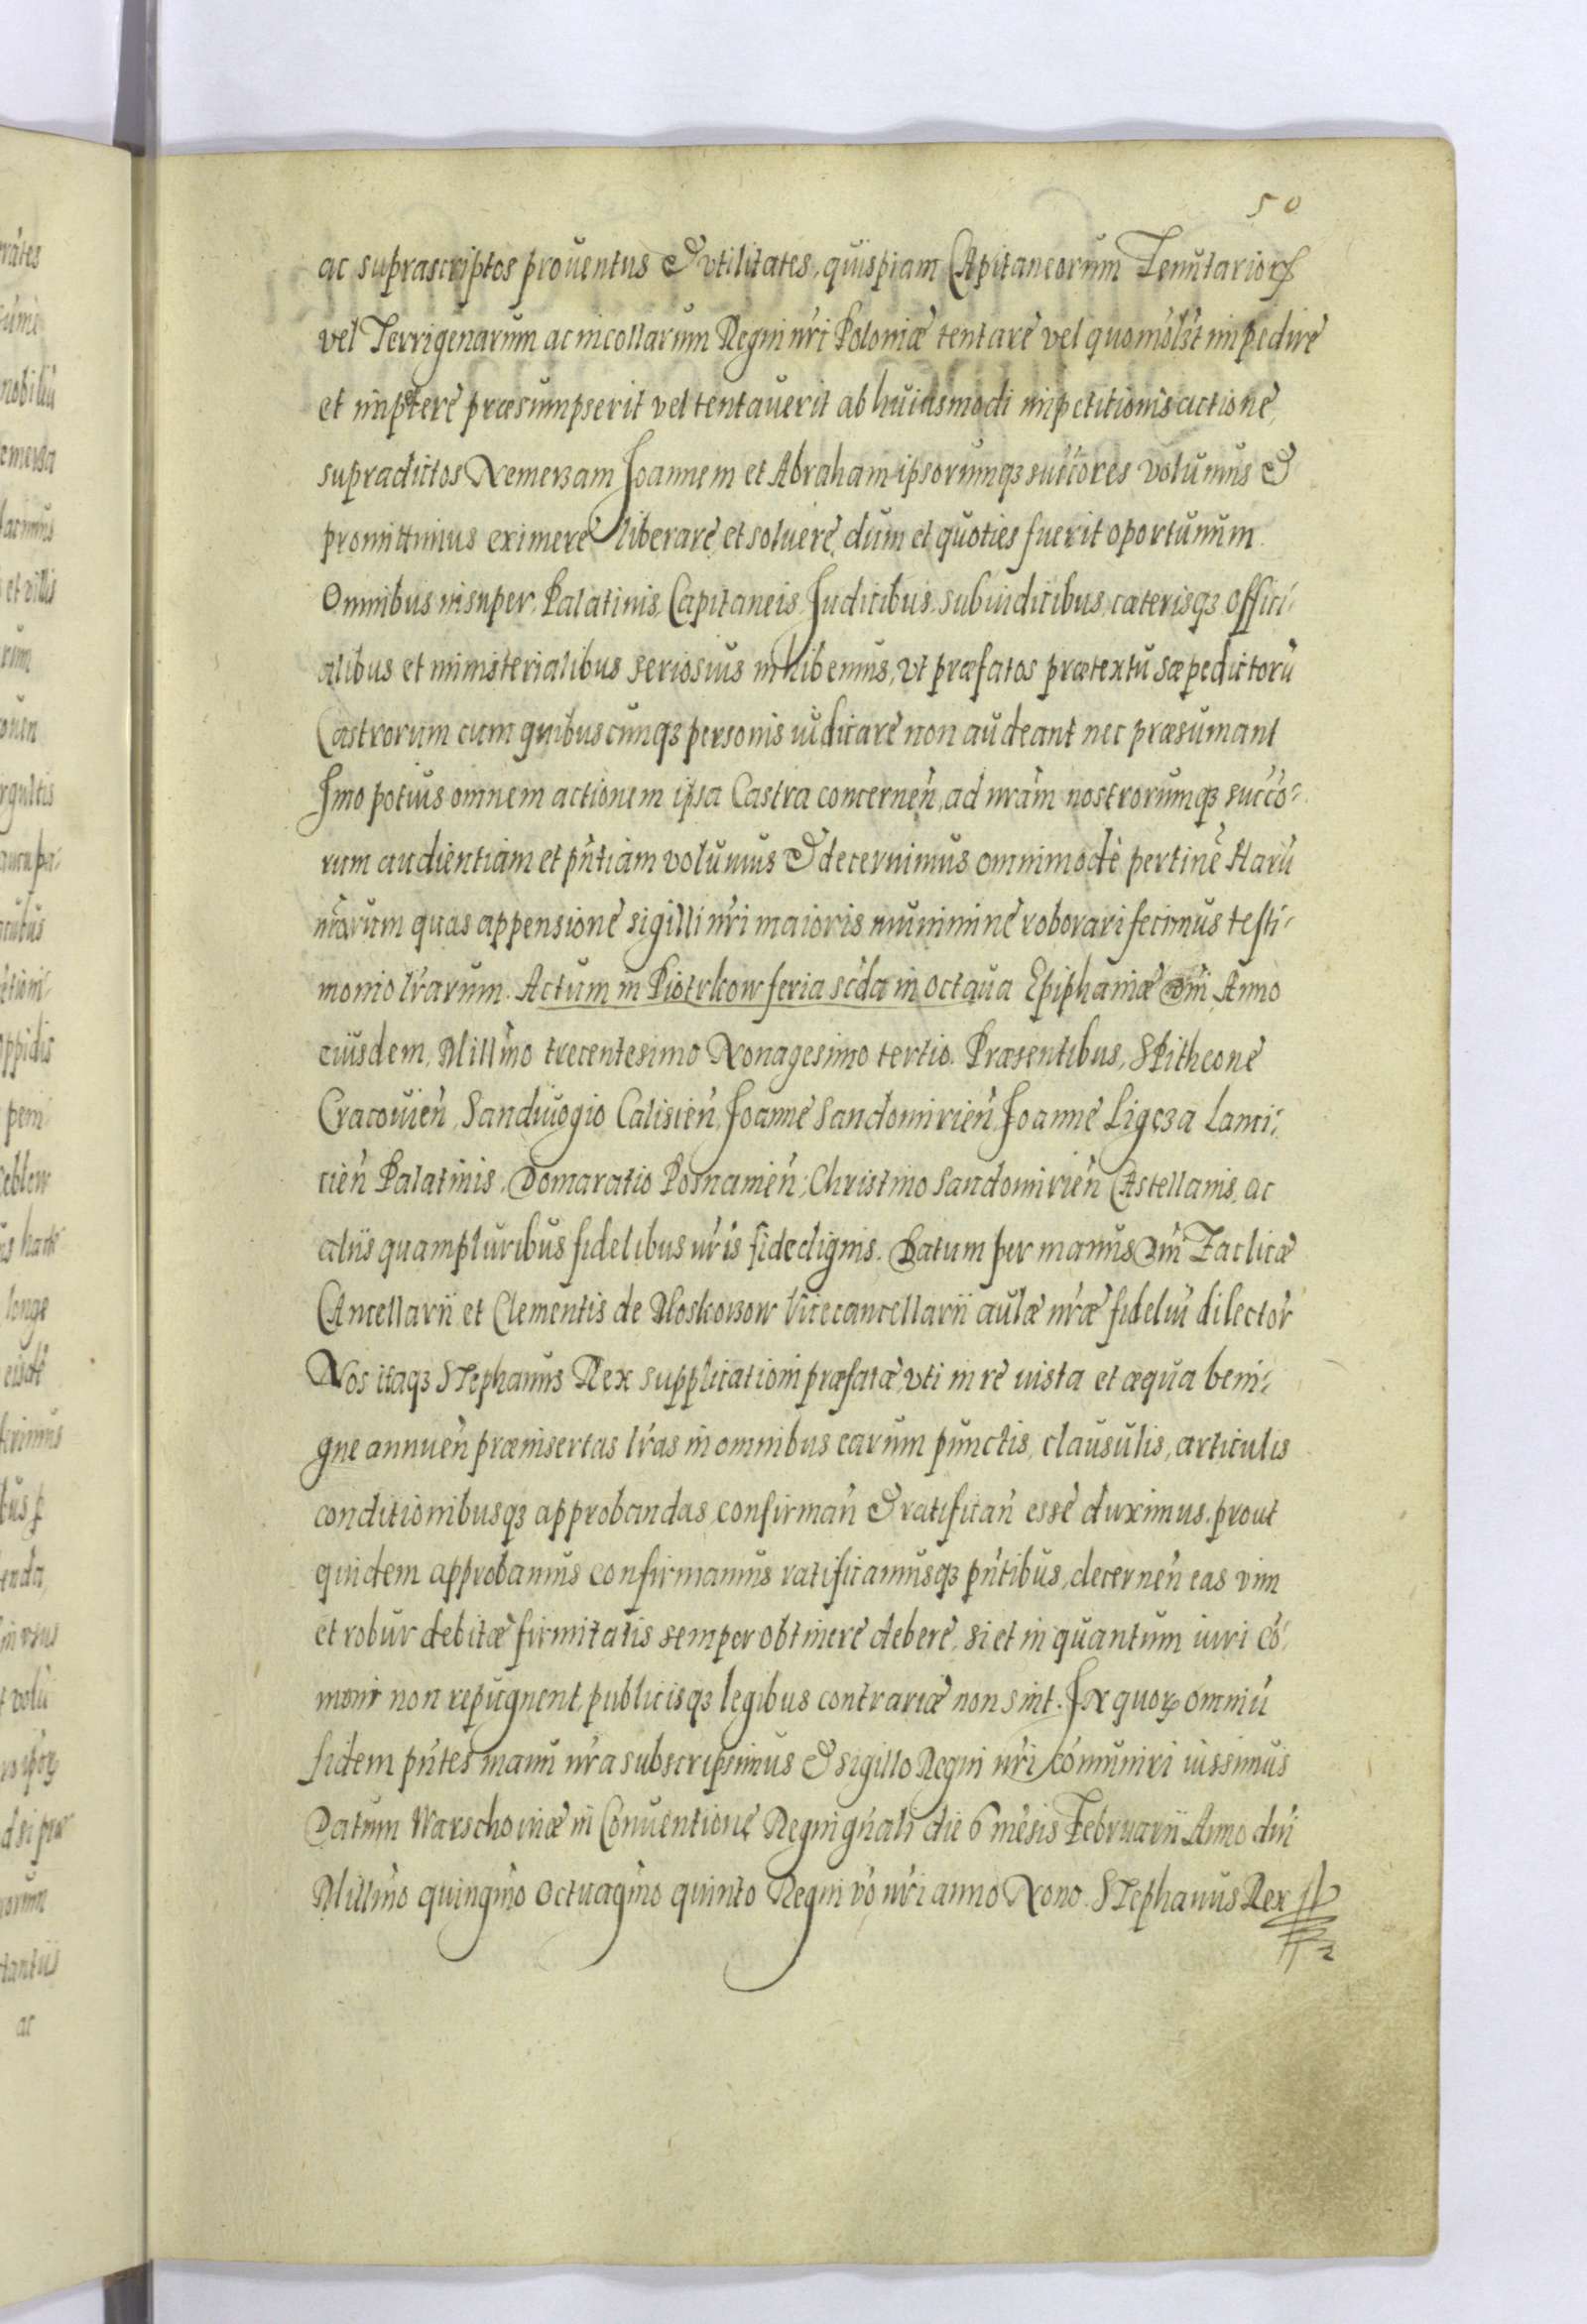 50
ac suprascriptos prouentus & vtilitates, quispiam Capitaneorum Tenutarior
vel Terrigenarum ac incollarum Regni nr̃i Poloniæ tentare vel quomolȝt impedire
et impetere præsumpserit vel tentauerit ab huiusmodi impetitionis actione,
supradictos Nemerzam Joannem et Abraham ipsorumqȝ succores volumus &
promittimus eximere liberare et soluere, dum et quoties fuerit oportunum
Omnibus insuper, Palatinis, Capitaneis Judicibus, subiudicibus, cæterisqȝ offici-
alibus et ministerialibus seriosius inhibemus, vt præfatos prætextu sæpedictorũ
Castrorum cum quibuscunqȝ personis iudicare non audeant nec præsumant
Imo potius omnem actionem ipsa Castra concerneñ, ad nrãm nostrorumqȝ succo-
rum audientiam et pñtiam volumus & decernimus omnimode pertinẽ Harũ
nr̃arum quas appensione sigilli nr̃i maioris munimine roborari fecimus testi-
monio lr̃arum. Actum in Piotrkow feria scda in octaua Epiphaniæ Dñi Anno
eiusdem, Millm̃o trecentesimo Nonagesimo tertio. Præsentibus, SPitheone
Cracouieñ, Sandiuogio Calisieñ, Joanne Sandomirieñ, Joanne Ligęza Lanci-
cieñ Palatinis, Domaratio Posnanieñ, Christino Sandomirieñ Castellanis, ac
aliis quampluribus fidelibus nr̃is fidedignis. Datum per manus Dñi Zaclicæ
Cancellarii et Clementis de Moskorzow Vicecancellarii aulæ nr̃æ fideliũ dilector̃
Nos itaqȝ STephanus Rex supplicationi præfatæ, vti in re iusta et æqua beni-
gne annueñ præinsertas lr̃as in omnibus earum punctis, clausulis, articulis
conditionibusqȝ approbandas, confirmañ & ratificañ esse duximus, prout
quidem approbamus confirmamus ratificamusqȝ pñtibus, decerneñ eas vim
et robur debitæ firmitatis semper obtinere debere, si et in quantum iuri cõ-
moni non repugnent, publicisqȝ legibus contrariæ non sint. In quorꝝ omniũ
fidem pñtes manu nr̃a subscripsimus & sigillo Regni nr̃i cõmuniri iussimus
Datum Warschoviæ in Conuentione Regni gñali die 6 mẽsis Februarii Anno dñi
Millm̃o quingm̃o octuagm̃o quinto Regni vo nr̃i anno Nono. STephanus Rex